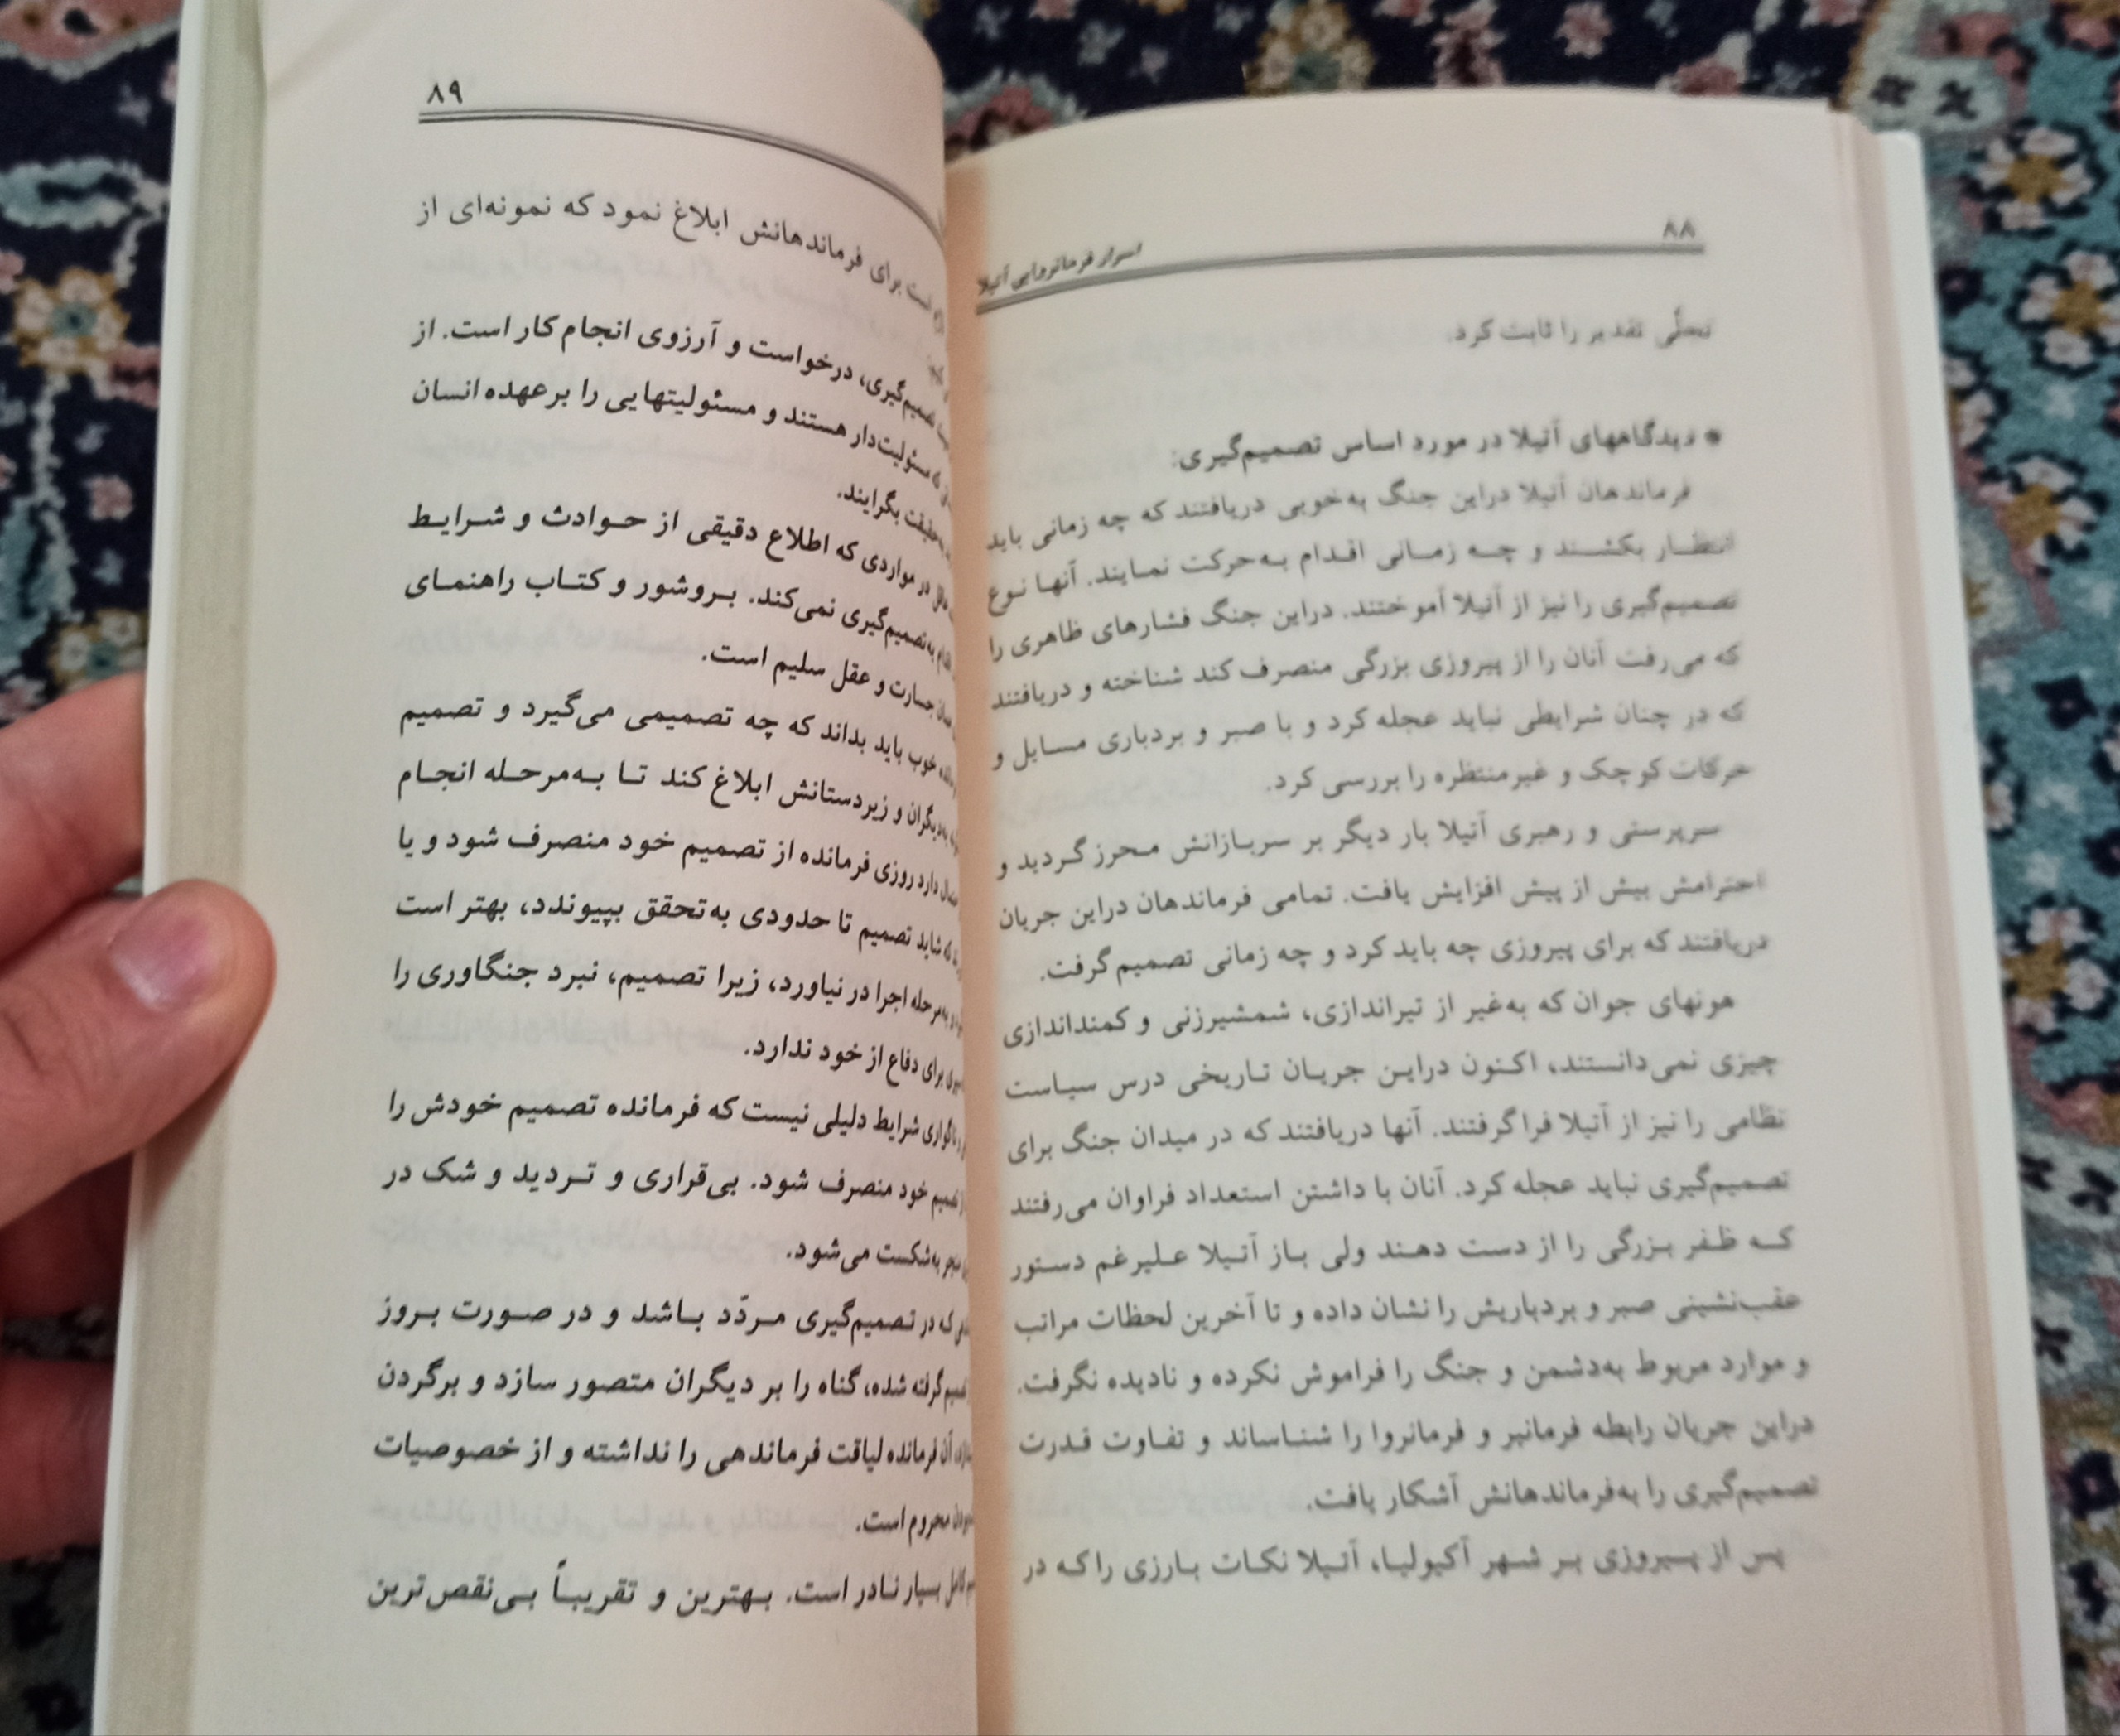 ۸۸
اسرار فرمانروایی آتیلا
تجلّی تقدیر را ثابت کرد.
* دیدگاههای آتیلا در مورد اساس تصمیم‌گیری:
فرماندهان آتیلا دراین جنگ به‌خوبی دریافتند که چه زمانی باید
انتظار بکشند و چه زمانی اقدام به‌حرکت نمایند. آنها نوع
تصمیم‌گیری را نیز از آتیلا آموختند. دراین جنگ فشارهای ظاهری را
که می‌رفت آنان را از پیروزی بزرگی منصرف کند شناخته و دریافتند
که در چنان شرایطی نباید عجله کرد و با صبر و بردباری مسایل و
حرکات کوچک و غیرمنتظره را بررسی کرد.
سرپرستی و رهبری آتیلا بار دیگر بر سربازانش محرز گردید و
احترامش بیش از پیش افزایش یافت. تمامی فرماندهان دراین جریان
دریافتند که برای پیروزی چه باید کرد و چه زمانی تصمیم گرفت.
هونهای جوان که به‌غیر از تیراندازی، شمشیرزنی و کمنداندازی
چیزی نمی‌دانستند، اکنون دراین جریان تاریخی درس سیاست
نظامی را نیز از آتیلا فراگرفتند. آنها دریافتند که در میدان جنگ برای
تصمیم‌گیری نباید عجله کرد. آنان با داشتن استعداد فراوان می‌رفتند
که ظفر بزرگی را از دست دهند ولی باز آتیلا علیرغم دستور
عقب‌نشینی صبر و بردباریش را نشان داده و تا آخرین لحظات مراتب
و موارد مربوط به‌دشمن و جنگ را فراموش نکرده و نادیده نگرفت.
دراین جریان رابطه فرمانبر و فرمانروا را شناساند و تفاوت قدرت
تصمیم‌گیری را به‌فرماندهانش آشکار یافت.
پس از پیروزی بر شهر آکیولیا، آتیلا نکات بارزی را که در
۸۹
است برای فرماندهانش ابلاغ نمود که نمونه‌ای از
تصمیم‌گیری، درخواست و آرزوی انجام کار است. از
که مسئولیت‌دار هستند و مسئولیتهایی را برعهده انسان
به‌حقیقت بگرایند.
در مواردی که اطلاع دقیقی از حوادث و شرایط
اقدام به‌تصمیم‌گیری نمی‌کند. بروشور و کتاب راهنمای
همان جسارت و عقل سلیم است.
خوب باید بداند که چه تصمیمی می‌گیرد و تصمیم
به‌دیگران و زیردستانش ابلاغ کند تا به‌مرحله انجام
دارد روزی فرمانده از تصمیم خود منصرف شود و یا
که شاید تصمیم تا حدودی به‌تحقق بپیوندد، بهتر است
به‌مرحله اجرا در نیاورد، زیرا تصمیم، نبرد جنگاوری را
برای دفاع از خود ندارد.
ناگواری شرایط دلیلی نیست که فرمانده تصمیم خودش را
از تصمیم خود منصرف شود. بی‌قراری و تردید و شک در
منجر به‌شکست می‌شود.
که در تصمیم‌گیری مردّد باشد و در صورت بروز
گرفته شده، گناه را بر دیگران متصور سازد و برگردن
آن فرمانده لیاقت فرماندهی را نداشته و از خصوصیات
محروم است.
کامل بسیار نادر است. بهترین و تقریباً بی‌نقص‌ترین